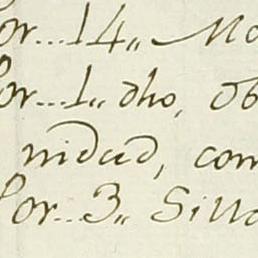 or...14,, Mo
or...1,, dho, ob
nidad, com
Por...3,, Silla